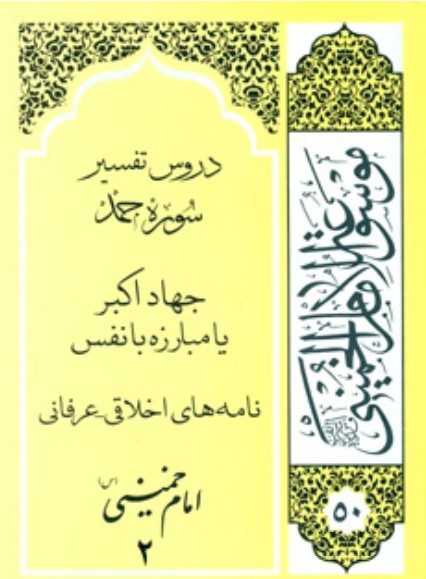 دروس تفسیر
سوره حمد
جهاد اکبر
یا مبارزه با نفس
نامه‌های اخلاقی ـ عرفانی
امام خمینی (س)
۲
موسوعة الإمام الخمینی
۵۰